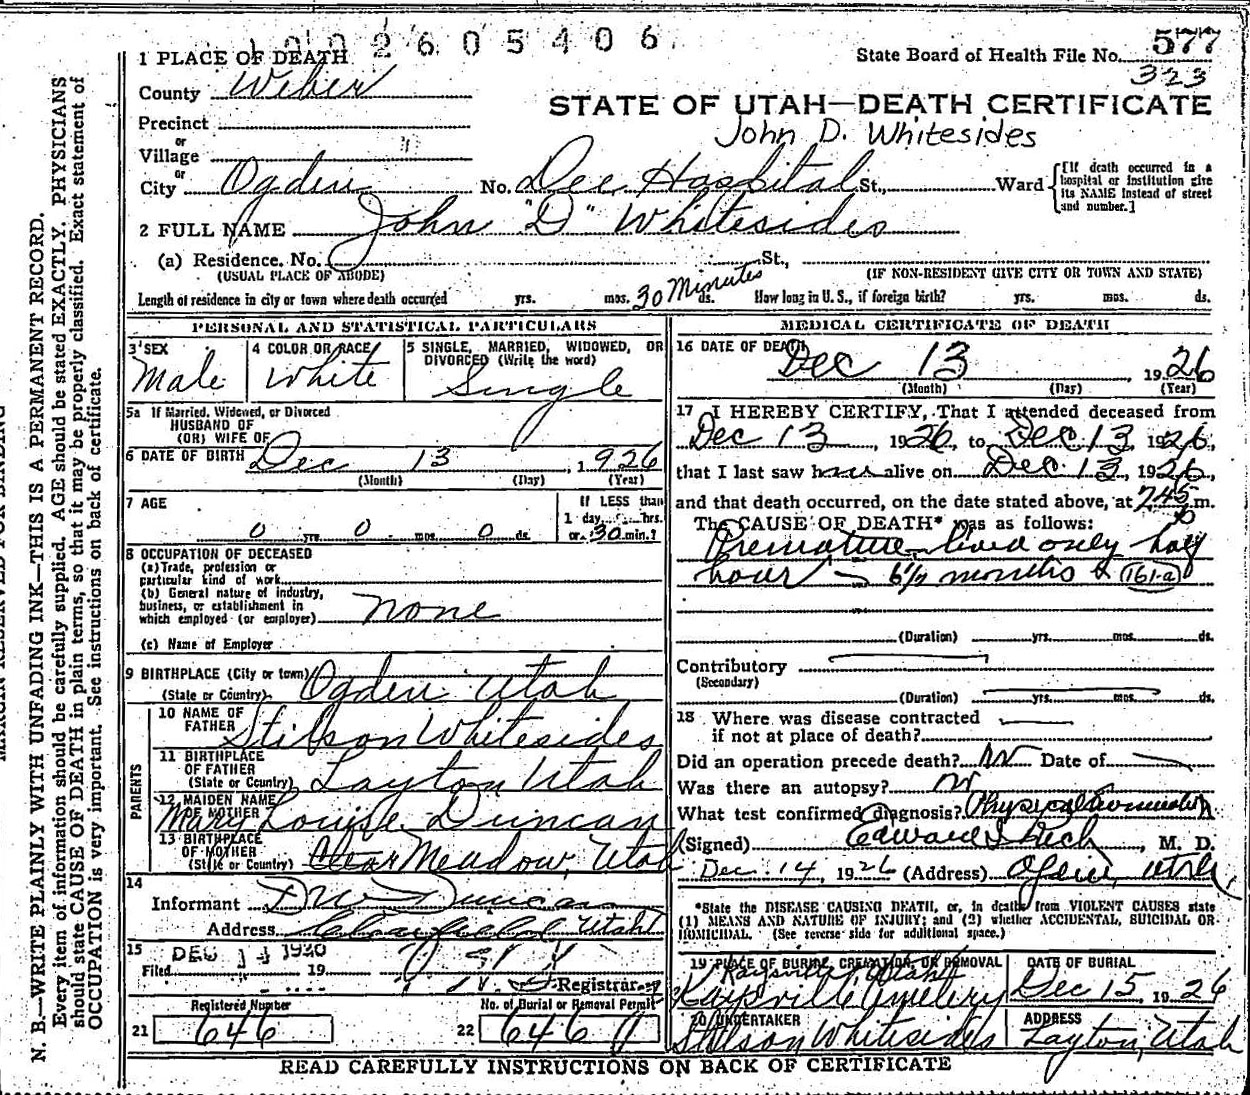 1002605406
1 PLACE OF DEATH
State Board of Health File No. 577
323
County Weber
STATE OF UTAH—DEATH CERTIFICATE
Precinct
or
John D. Whitesides
Village
or
City Ogden No. Dee Hospital St., Ward
[If death occurred in a hospital or institution give its NAME instead of street and number.]
2 FULL NAME John "D" Whitesides
(a) Residence. No. St.,
(USUAL PLACE OF ABODE) (IF NON-RESIDENT GIVE CITY OR TOWN AND STATE)
Length of residence in city or town where death occurred yrs. mos. 30 Minutes ds. How long in U. S., if foreign birth? yrs. mos. ds.
PERSONAL AND STATISTICAL PARTICULARS
3 SEX Male
4 COLOR OR RACE White
5 SINGLE, MARRIED, WIDOWED, OR DIVORCED (Write the word) Single
5a If Married, Widowed, or Divorced
HUSBAND OF
(OR) WIFE OF
6 DATE OF BIRTH Dec 13, 1926
(Month) (Day) (Year)
7 AGE
0 yrs. 0 mos. 0 ds.
If LESS than
1 day, hrs.
or 30 min.?
8 OCCUPATION OF DECEASED
(a) Trade, profession or
particular kind of work
(b) General nature of industry,
business, or establishment in
which employed (or employer) none
(c) Name of Employer
9 BIRTHPLACE (City or town)
(State or Country) Ogden Utah
PARENTS
10 NAME OF
FATHER Stilson Whitesides
11 BIRTHPLACE
OF FATHER
(State or Country) Layton Utah
12 MAIDEN NAME
OF MOTHER Mary Louise Duncan
13 BIRTHPLACE
OF MOTHER
(State or Country) Clear Meadow, Utah
14
Informant Duncan
Address Clearfield Utah
15 DEC 14
Filed 19
Registrar
Registered Number No. of Burial or Removal Permit
21 646 22 646
MEDICAL CERTIFICATE OF DEATH
16 DATE OF DEATH
Dec 13, 1926
(Month) (Day) (Year)
17 I HEREBY CERTIFY, That I attended deceased from
Dec 13, 1926, to Dec 13, 1926,
that I last saw h alive on Dec. 13, 1926,
and that death occurred, on the date stated above, at 745 p m.
The CAUSE OF DEATH* was as follows:
Premature lived only half
hour — 6 1/2 months (161-a)
(Duration) yrs. mos. ds.
Contributory
(Secondary)
(Duration) yrs. mos. ds.
18 Where was disease contracted
if not at place of death?
Did an operation precede death? No Date of
Was there an autopsy? No
What test confirmed diagnosis? Physical Examination
(Signed) Edward I Rich, M. D.
Dec. 14, 1926 (Address) Ogden, Utah
*State the DISEASE CAUSING DEATH, or, in deaths from VIOLENT CAUSES state
(1) MEANS AND NATURE OF INJURY; and (2) whether ACCIDENTAL, SUICIDAL OR
HOMICIDAL. (See reverse side for additional space.)
19 PLACE OF BURIAL, CREMATION, OR REMOVAL
Kaysville Utah
Kaysville Cemetery
DATE OF BURIAL
Dec 15, 1926
20 UNDERTAKER
Stilson Whitesides
ADDRESS
Layton, Utah
READ CAREFULLY INSTRUCTIONS ON BACK OF CERTIFICATE
MARGIN RESERVED FOR BINDING
N. B.—WRITE PLAINLY WITH UNFADING INK—THIS IS A PERMANENT RECORD.
Every item of information should be carefully supplied. AGE should be stated EXACTLY. PHYSICIANS
should state CAUSE OF DEATH in plain terms, so that it may be properly classified. Exact statement of
OCCUPATION is very important. See instructions on back of certificate.